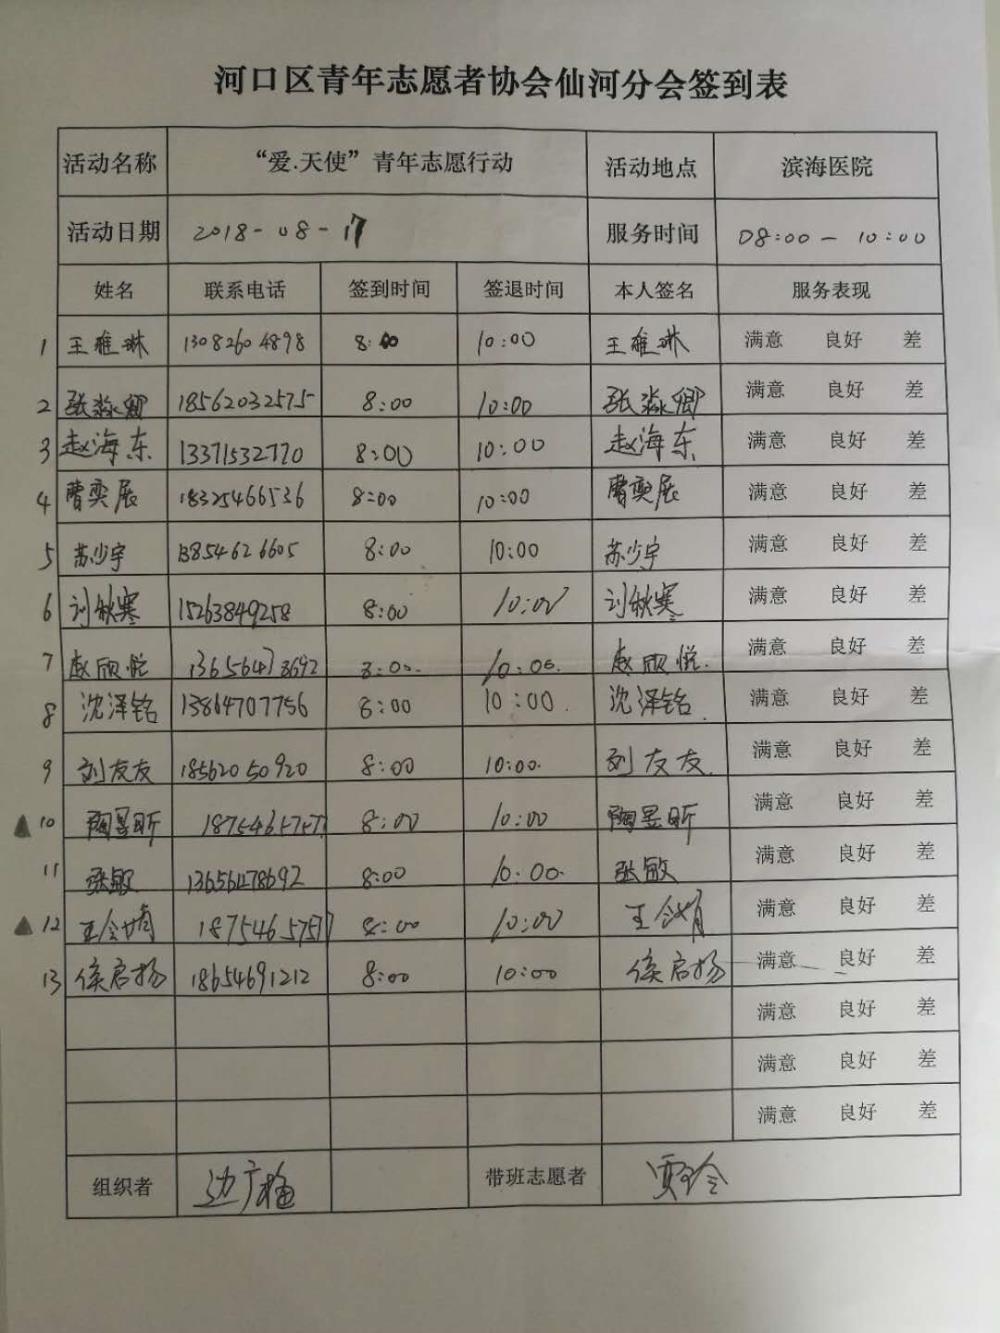 河口区青年志愿者协会仙河分会签到表
活动名称 “爱.天使”青年志愿行动 活动地点 滨海医院
活动日期 2018-08-17 服务时间 08:00-10:00
姓名 联系电话 签到时间 签退时间 本人签名 服务表现
1 王雅琳 13082604898 8:00 10:00 王雅琳 满意 良好 差
2 张淼卿 18562032575 8:00 10:00 张淼卿 满意 良好 差
3 赵海东 13371532770 8:00 10:00 赵海东 满意 良好 差
4 曹奕展 18325466536 8:00 10:00 曹奕展 满意 良好 差
5 苏少宇 13854626605 8:00 10:00 苏少宇 满意 良好 差
6 刘秋寒 15263849258 8:00 10:00 刘秋寒 满意 良好 差
7 赵欣悦 13656478692 8:00. 10:00. 赵欣悦. 满意 良好 差
8 沈泽铭 13864707756 8:00 10:00. 沈泽铭. 满意 良好 差
9 刘友友 18562050920 8:00 10:00. 刘友友. 满意 良好 差
▲ 10 陶昱昕 18754657577 8:00 10:00 陶昱昕 满意 良好 差
11 张敏 13656478692 8:00 10:00. 张敏 满意 良好 差
▲ 12 王令娟 18754657577 8:00 10:00 王令娟 满意 良好 差
13 侯启扬 18654691212 8:00 10:00 侯启扬 满意 良好 差
满意 良好 差
满意 良好 差
满意 良好 差
组织者 边广梅 带班志愿者 贾玲